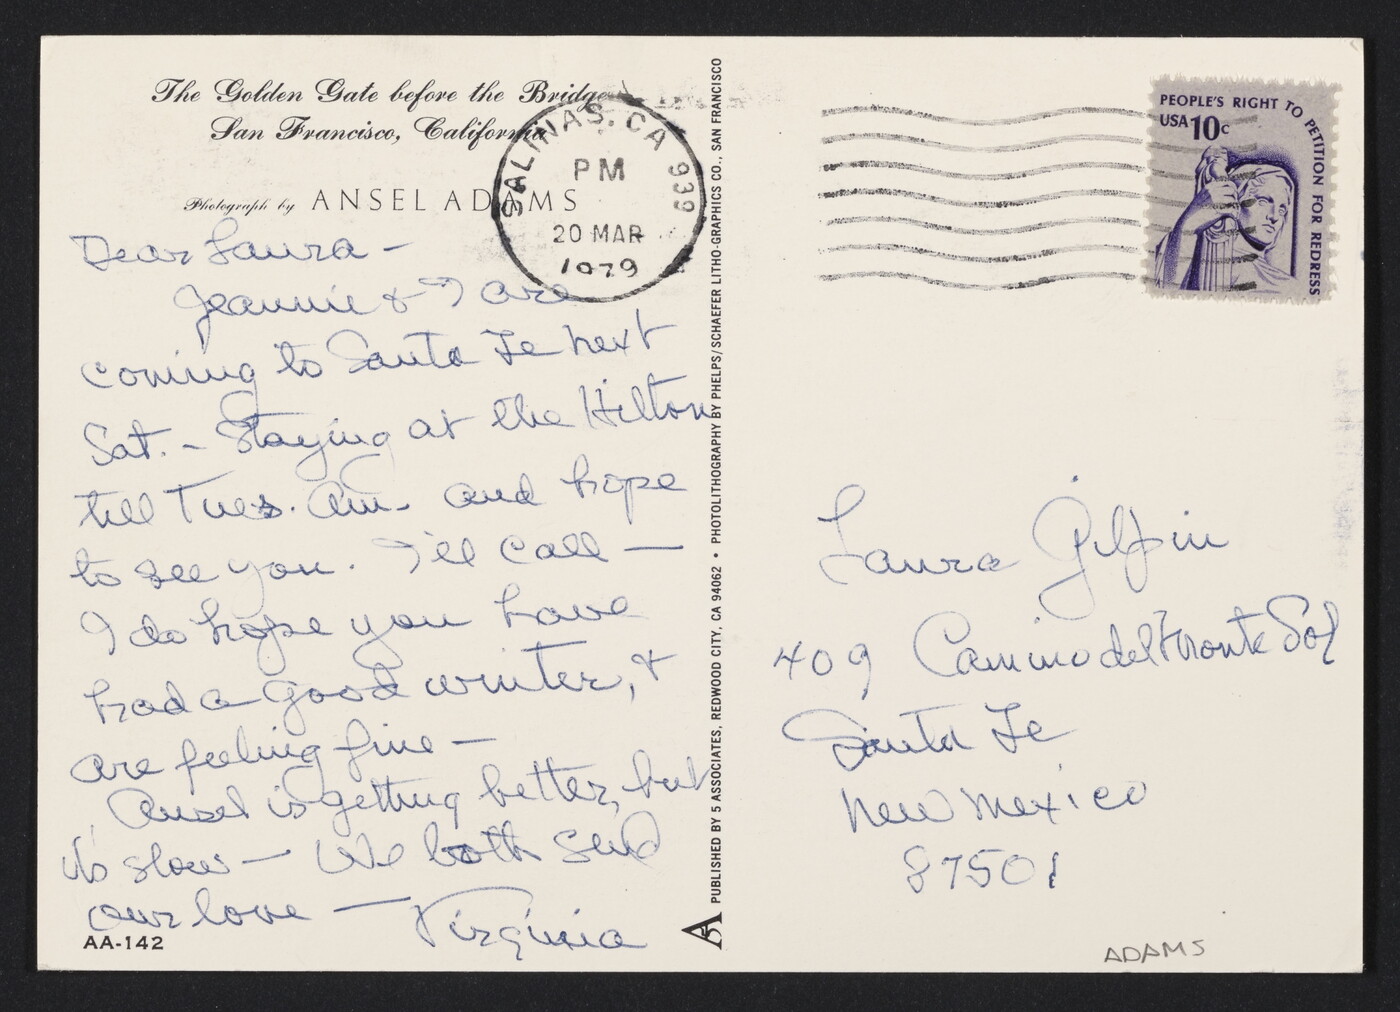 The Golden Gate before the Bridge
San Francisco, California
Photograph by ANSEL ADAMS
SALINAS, CA 939
PM
20 MAR
1979
PEOPLE'S RIGHT TO PETITION FOR REDRESS
USA 10c
Dear Laura –
Jeannie & I are
coming to Santa Fe next
Sat. – Staying at the Hilton
till Tues. am. and hope
to see you. I'll call —
I do hope you have
had a good winter, &
are feeling fine —
Ansel is getting better, but
it's slow — We both send
our love — Virginia
AA-142
PUBLISHED BY 5 ASSOCIATES, REDWOOD CITY, CA 94062 • PHOTOLITHOGRAPHY BY PHELPS/SCHAEFER LITHO-GRAPHICS CO., SAN FRANCISCO
Laura Gilpin
409 Camino del Monte Sol
Santa Fe
New Mexico
87501
ADAMS